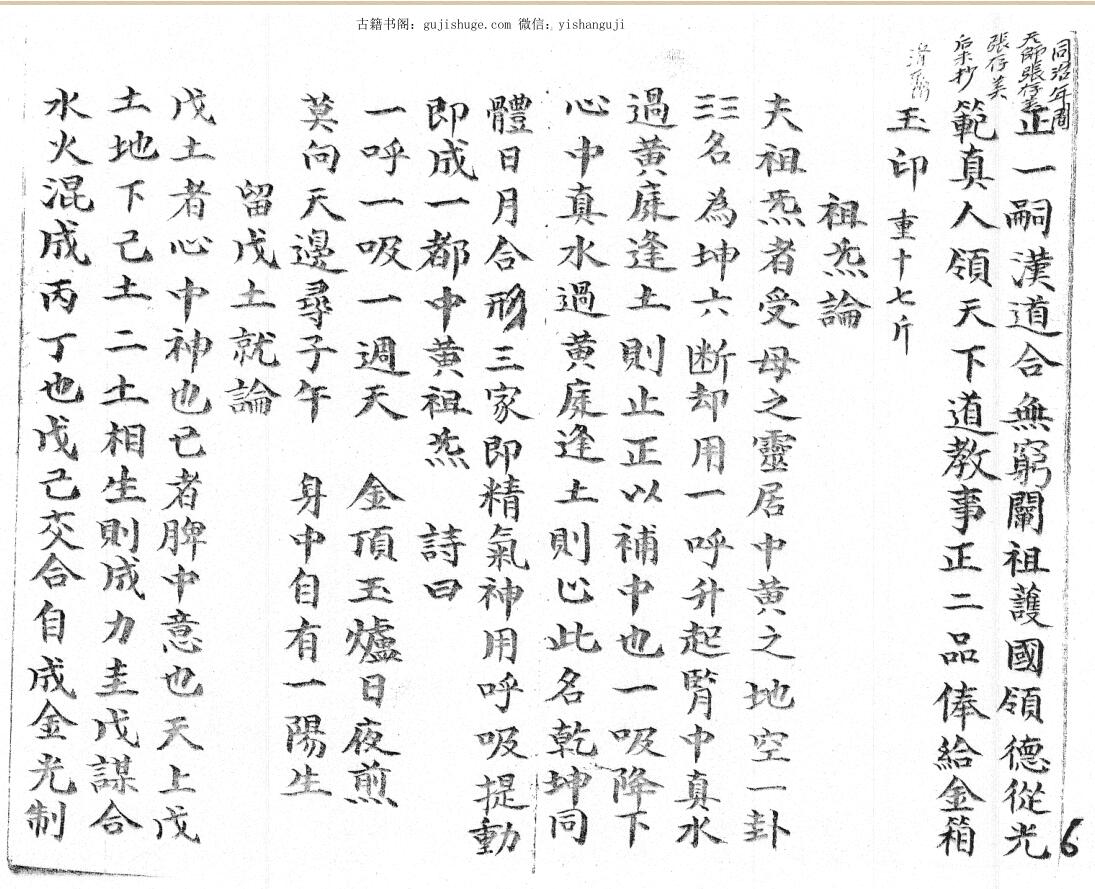 古籍书阁：gujishuge.com 微信：yishanguji
同治年間
天師張存義
張存美
后某抄
正一嗣漢道合無窮闡祖護國領德從光
範真人領天下道教事正二品俸給金箱
玉印 重十七斤
祖炁論
夫祖炁者受母之靈居中黄之地空一卦
☷名為坤六断却用一呼升起腎中真水
過黄庭逢土則止正以補中也一吸降下
心中真水過黄庭逢土則止此名乾坤同
體日月合形三家即精氣神用呼吸提動
即成一都中黄祖炁 詩曰
一呼一吸一週天 金頂玉爐日夜煎
莫向天邊尋子午 身中自有一陽生
留戊土就論
戊土者心中神也己者脾中意也天上戊
土地下己土二土相生則成力圭戊謀合
水火混成丙丁也戊己交合自成金光制
6